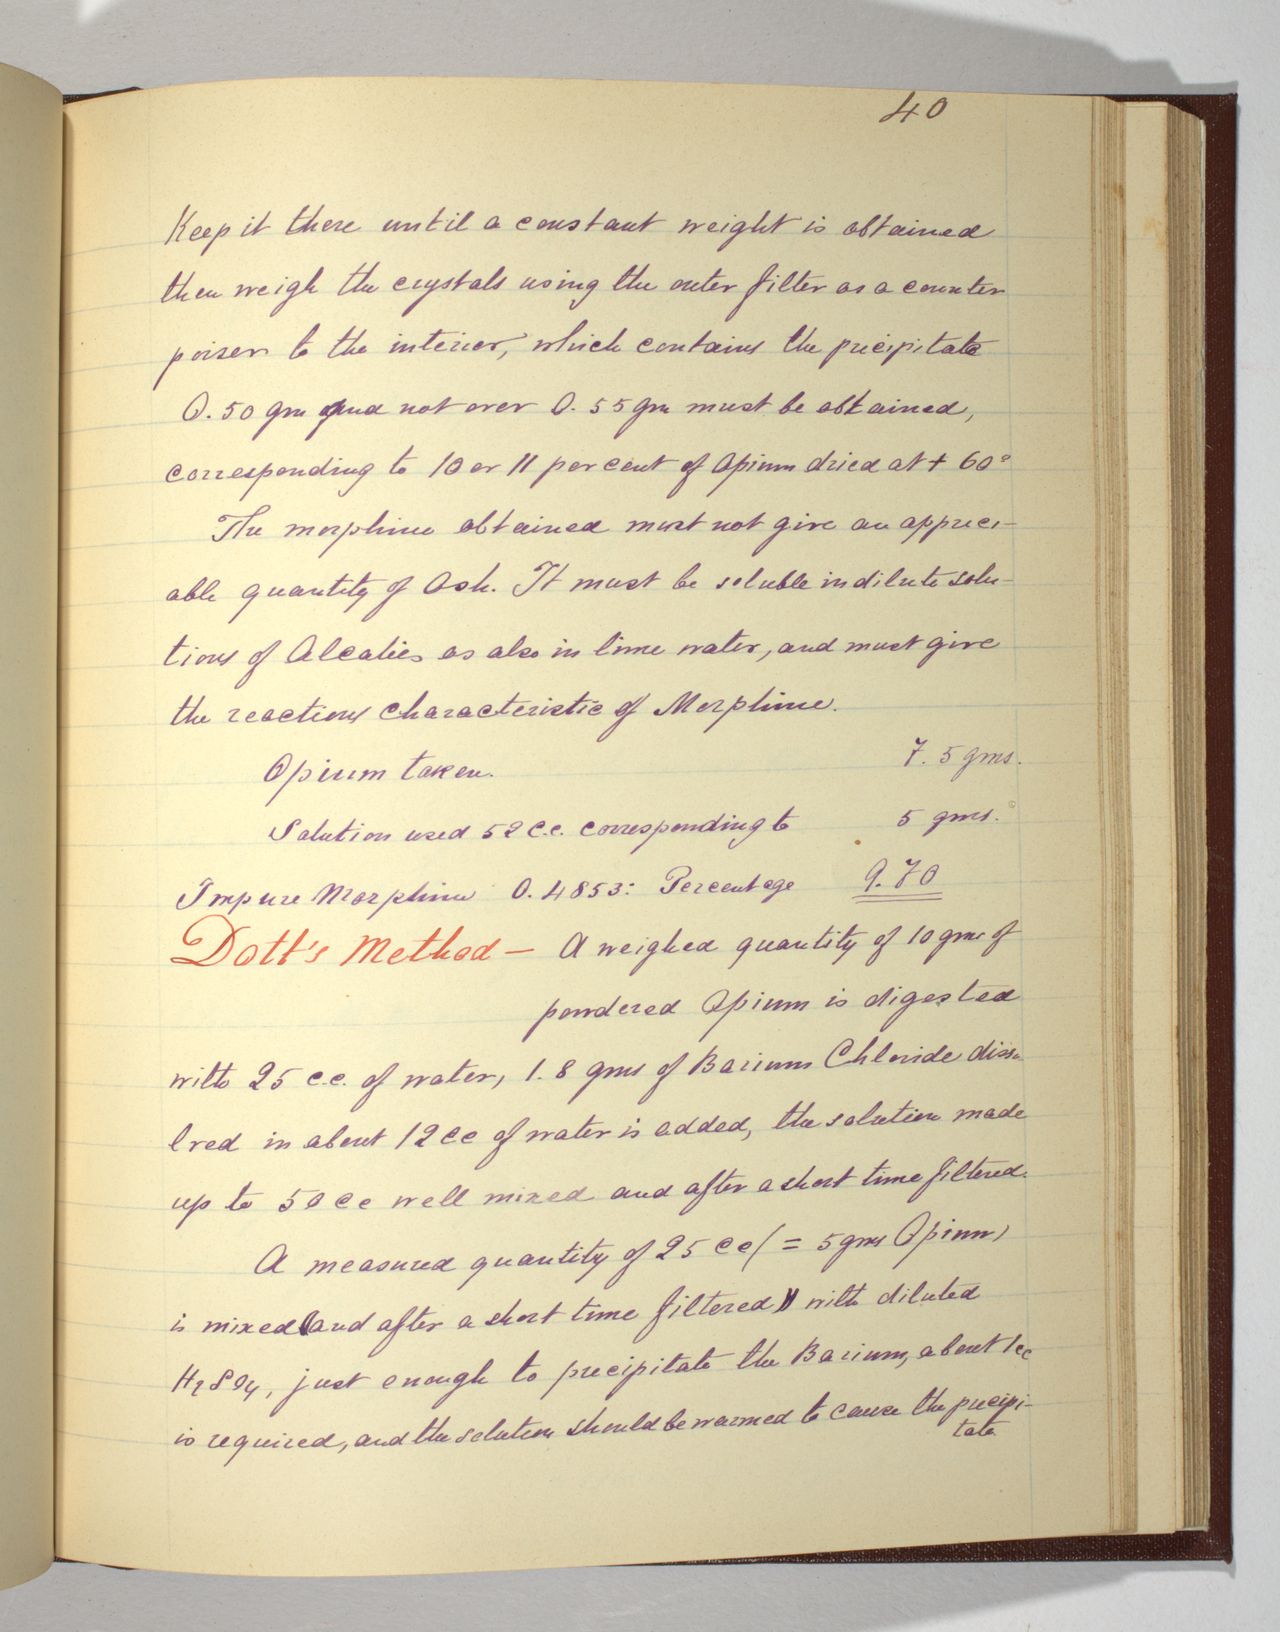 40
Keep it there until a constant weight is obtained
then weigh the crystals using the outer filter as a counter
poiser to the interior, which contains the precipitate
0.50 gm and not over 0.55 gm must be obtained,
corresponding to 10 or 11 per cent of Opium dried at + 60°
The morphine obtained must not give an appreci-
able quantity of Ash. It must be soluble in dilute solu-
tions of Alcalies as also in lime water, and must give
the reactions characteristic of Morphine.
Opium taken. 7.5 gms.
Solution used 52 c.c. corresponding to 5 gms.
Impure Morphine 0.4853: Percentage 9.70
Dott's Method — A weighed quantity of 10 gms of
powdered Opium is digested
with 25 c.c. of water, 1.8 gms of Barium Chloride disso
lved in about 12 cc of water is added, the solution made
up to 50 cc well mixed and after a short time filtered.
A measured quantity of 25 cc (= 5 gms Opium)
is mixed (and after a short time filtered) with diluted
H2SO4, just enough to precipitate the Barium, about 1cc
is required, and the solution should be warmed to cause the precipi-
tate